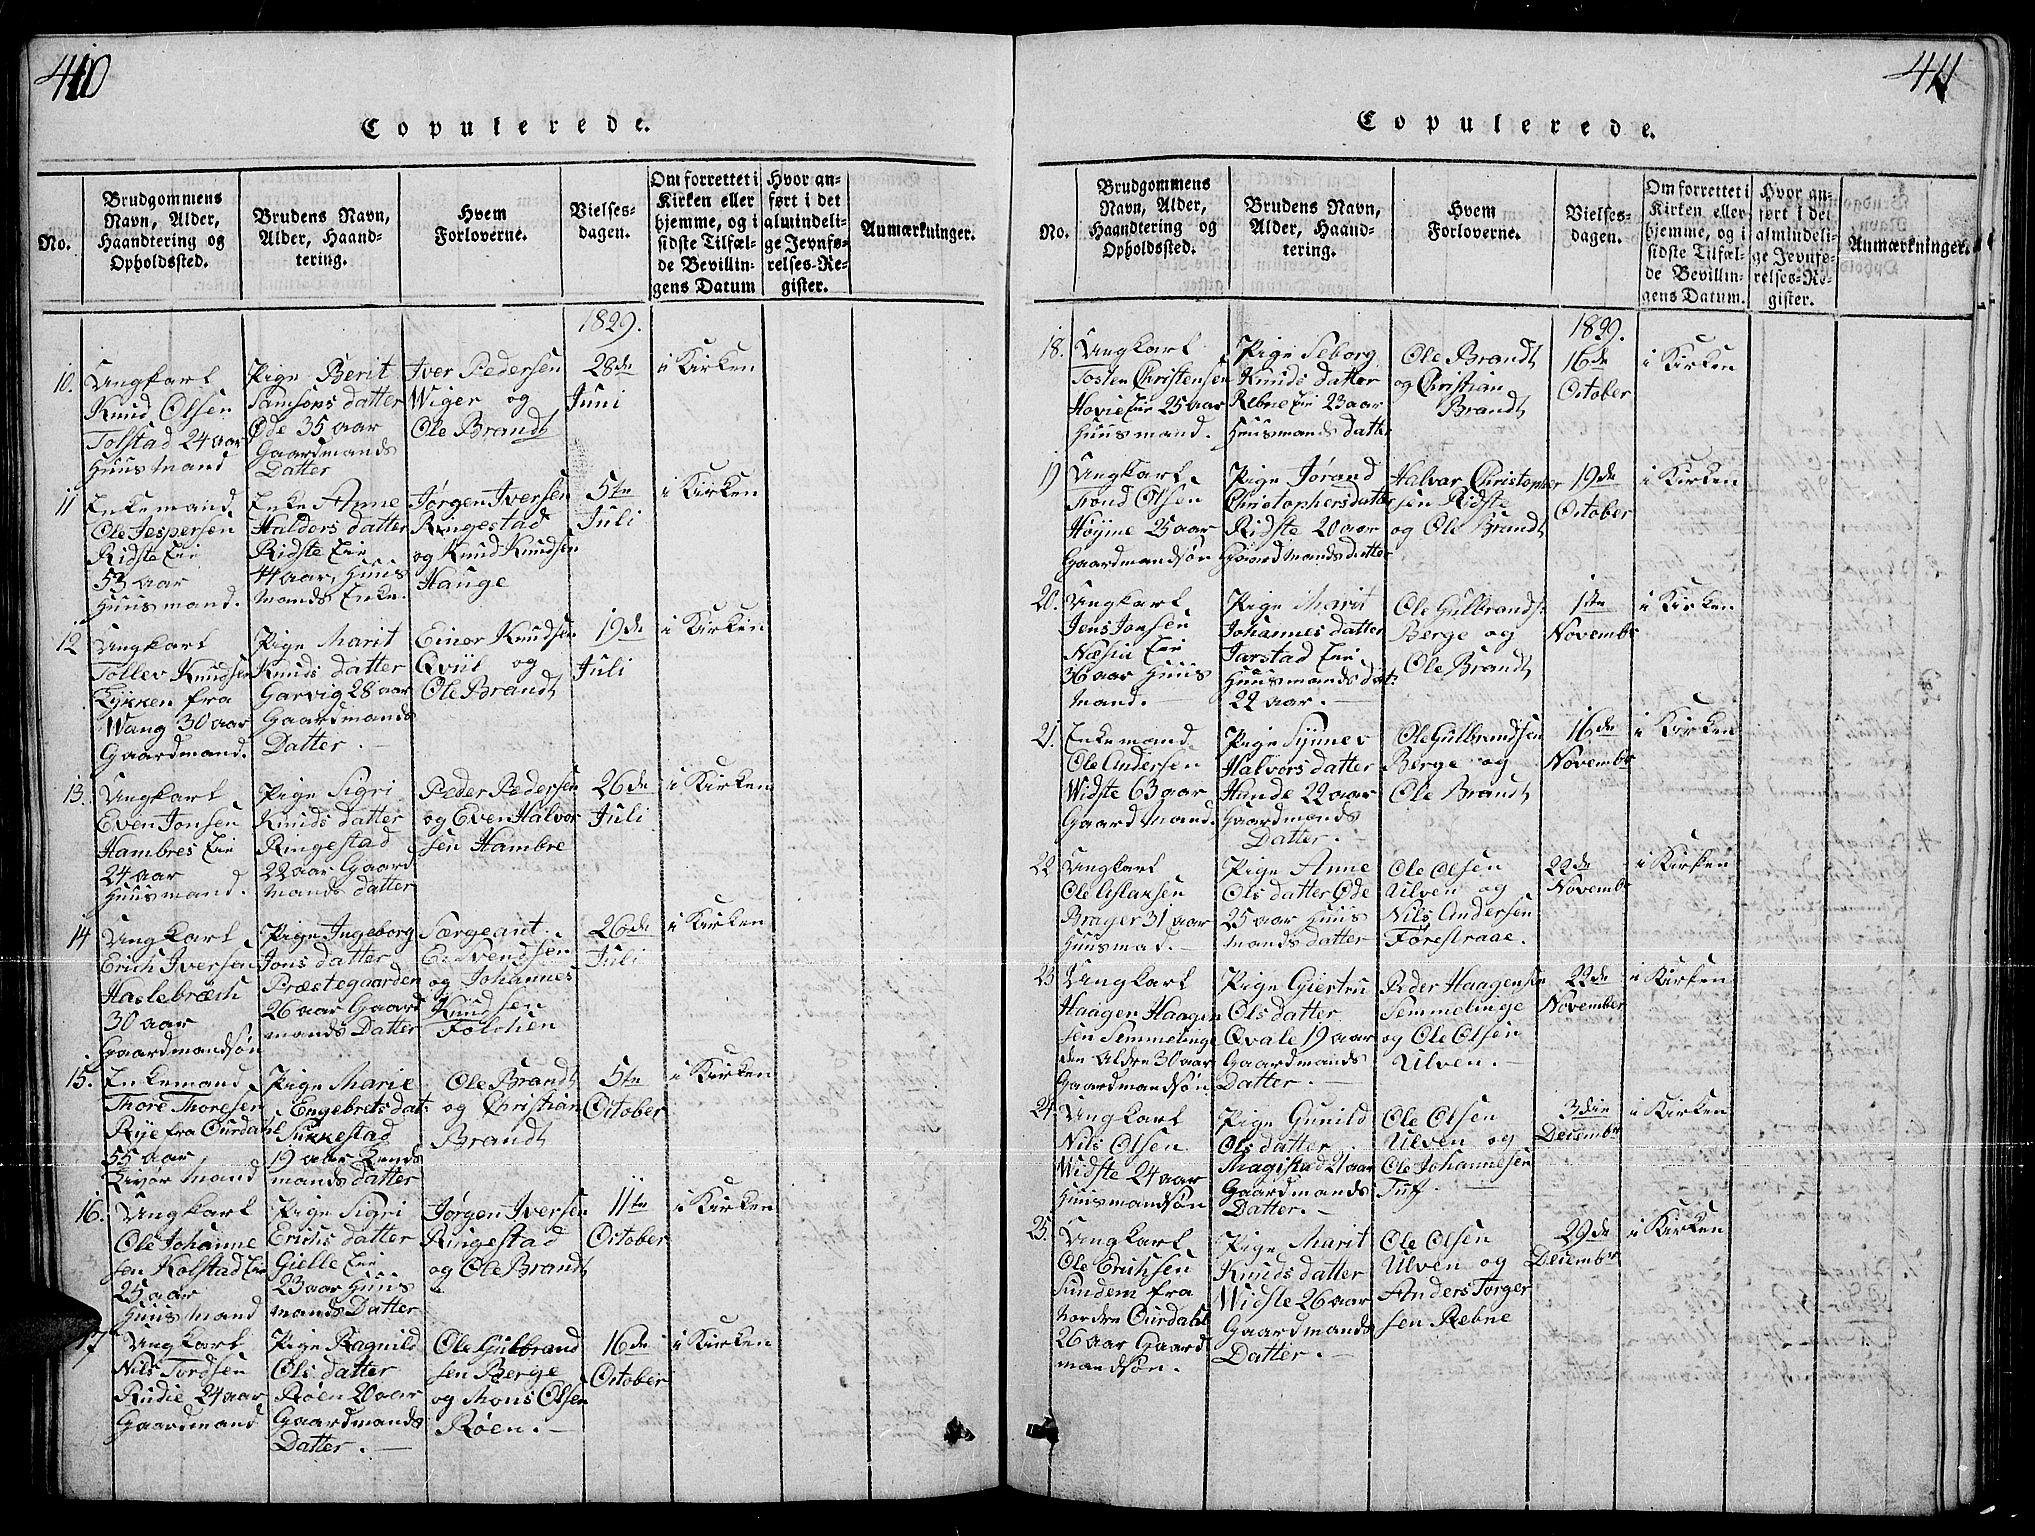 410
Copulerede.
No.
Brudgommens Navn, Alder, Haandtering og Opholdssted.
Brudens Navn, Alder, Haandtering.
Hvem Forloverne.
Vielsesdagen.
Om forrettet i Kirken eller hjemme, og i sidste Tilfælde Bevillingens Datum
Hvor anført i det almindelige Jevnførelses-Register.
Anmærkninger.
1829.
10.
Ungkarl
Knud Olsen
Tolstad 24 aar
Huusmand
Pige Berit
Samsons datter
Øde 35 aar
Gaardmands
Datter
Iver Pedersen
Wiger og
Ole Brandt
28de
Juni
i Kirken
11
Enkemand
Ole Jespersen
Ridste Eie
53 aar
Huusmand.
Enke Anne
Halders datter
Ridste Eie
44 aar, Huus
mands Enke.
Jørgen Iversen
Ringestad
og Knud Knudsen
Hauge
5te
Juli
i Kirken
12
Ungkarl
Tollev Knudsen
Kykken fra
Wang 30 aar
Gaardmand.
Pige Marit
Knuds datter
Garvig 28 aar
Gaardmands
Datter.
Einer Knudsen
Qviit og
Ole Brandt
19de
Juli
i Kirken
13.
Ungkarl
Even Jonsen
Hambres Eie
24 aar
Huusmand.
Pige Sigri
Knuds datter
Ringestad
22 aar Gaard
mands datter
Peder Pedersen
og Even Halvor
sen Hambre
26de
Juli
i Kirken
14
Ungkarl
Erich Iversen
Haslebræch
30 aar
Gaardmandsøn
Pige Ingeborg
Jons datter
Præstegaarden
26 aar Gaard
mands Datter
Særgeant
E. Svendsen
og Johannes
Knudsen
Folchen
26de
Juli
i Kirken
15.
Enkemand
Thore Thoresen
Rye fra Ourdahl
55 aar
Pige Marie
Engebrets dat:
Sukkestad
19 aar
mands datter
Ole Brandt
og Christian
Brandt
5te
October
i Kirken
16.
Ungkarl
Ole Johanne
sen Kolstad Eie
25 aar
Huusmand
Pige Sigri
Erichs datter
Gielle Eie
23 aar Huus
mands Datter
Jørgen Iversen
Ringestad
og Ole Brandt
11te
October
i Kirken
17
Ungkarl
Nils Tordsen
Rudie 24 aar
Gaardmand
Pige Ragnild
Ols datter
Røen 20 aar
Gaardmands
Datter.
Ole Gulbrand
sen Berge
og Mons Olsen
Røen.
16de
October
i Kirken
411
Copulerede.
No.
Brudgommens Navn, Alder, Haandtering og Opholdssted.
Brudens Navn, Alder, Haandtering.
Hvem Forloverne.
Vielsesdagen.
Om forrettet i Kirken eller hjemme, og i sidste Tilfælde Bevillingens Datum.
Hvor anført i det almindelige Jevnførelses-Register.
Anmærkninger.
1829.
18.
Ungkarl
Tosten Christensen
Hovie Eie 25 aar
Huusmand.
Pige Seborg
Knuds datter
Rebne Eie 23 aar
Huusmands datter
Ole Brandt
og Christian
Brandt
16de
October
i Kirken
19
Ungkarl
Trond Olsen
Høyme 25 aar
Gaardmandsøn
Pige Jørand
Christophersdatter
Ridste 20 aar
Gaardmandsdatter
Halvor Christopher
sen Ridste
og Ole Brandt
19de
October
i Kirken
20.
Ungkarl
Jens Jonsen
Næsin Eie
36 aar Huus
mand.
Pige Marit
Johannes datter
Jarstad Eie
Huusmands dat:
22 aar.
Ole Gulbrands:
Berge og
Ole Brandt
1ste
Novembr
i Kirken
21.
Enkemand
Ole Andersen
Widste 63 aar
Gaardmand.
Pige Synnev
Halvors datter
Hande 22 aar
Gaardmands
Datter.
Ole Gulbrandsen
Berge og
Ole Brandt
16de
Novembr
i Kirken
22
Ungkarl
Ole Aslaksen
Brager 31 aar
Huusmad.
Pige Anne
Ols datter Øde
25 aar Huus
mands datter
Ole Olsen
Ulven og
Nils Andersen
Førestraae.
22de
Novembr
i Kirken
23
Ungkarl
Haagen Haagen
sen Semmelinge
den Aldre 30 aar
Gaardmandsøn
Pige Giertru
Ols datter
Qvale 19 aar
Gaardmands
Datter.
Peder Haagensen
Semmelinge
og Ole Olsen
Ulven.
22de
November
i Kirken
24.
Ungkarl
Nils Olsen
Widste 24 aar
Huusmandsøn
Pige Gunild
Ols datter
Magistad 21 aar
Gaardmands
Datter.
Ole Olsen
Ulven og
Ole Johannesen
Tuf
3die
Decembr
i Kirken
25.
Ungkarl
Ole Erichsen
Sundem fra
Nordre Ourdahl
26 aar Gaard
mandsøn.
Pige Marit
Knuds datter
Widste 26 aar
Gaardmands
Datter.
Ole Olsen
Ulven og
Anders Torger
sen Rebne
29de
Decembr
i Kirken